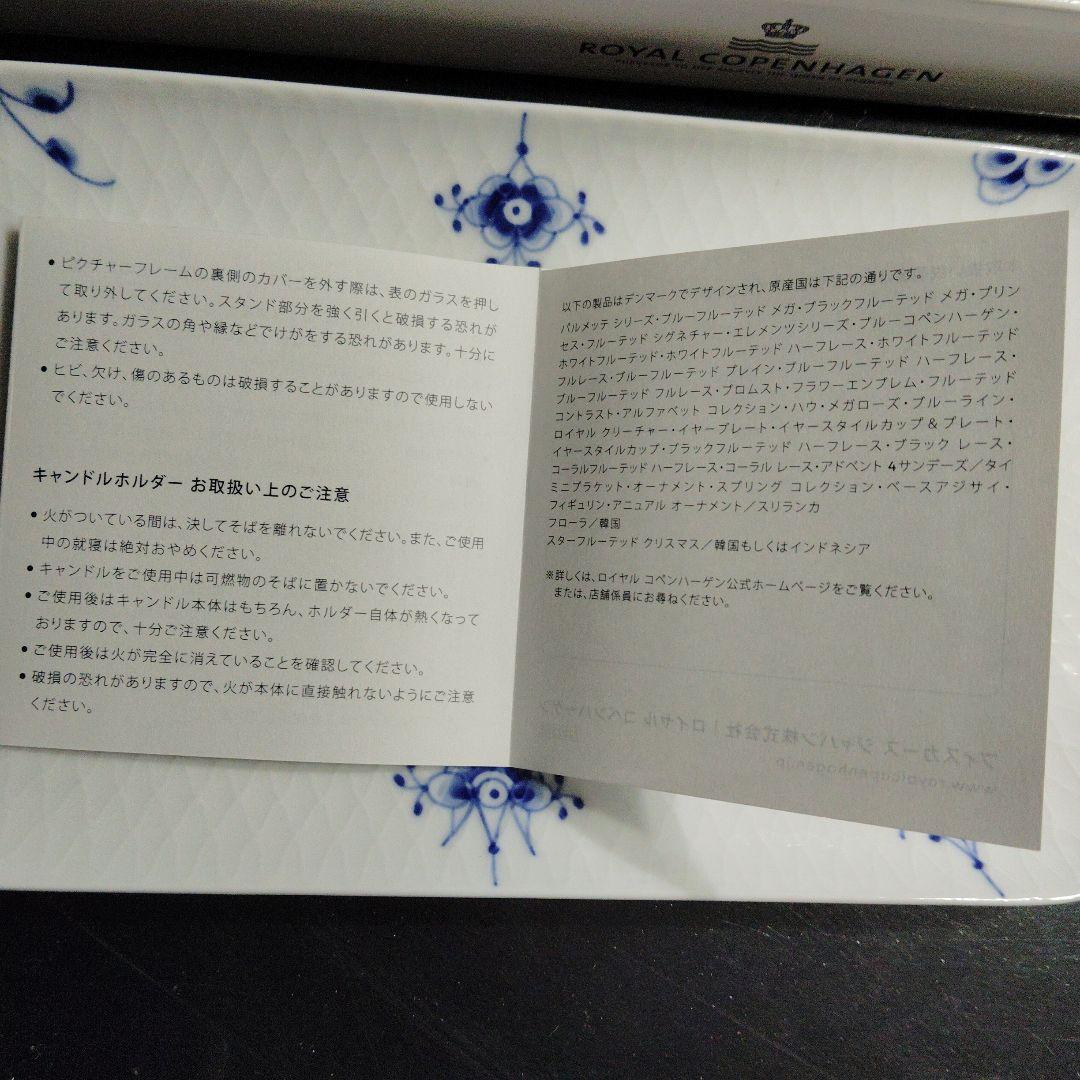 ROYAL COPENHAGEN
• ピクチャーフレームの裏側のカバーを外す際は、表のガラスを押し
て取り外してください。スタンド部分を強く引くと破損する恐れが
あります。ガラスの角や縁などでけがをする恐れがあります。十分に
ご注意ください。
• ヒビ、欠け、傷のあるものは破損することがありますので使用しない
でください。
キャンドルホルダー お取扱い上のご注意
• 火がついている間は、決してそばを離れないでください。また、ご使用
中の就寝は絶対おやめください。
• キャンドルをご使用中は可燃物のそばに置かないでください。
• ご使用後はキャンドル本体はもちろん、ホルダー自体が熱くなって
おりますので、十分ご注意ください。
• ご使用後は火が完全に消えていることを確認してください。
• 破損の恐れがありますので、火が本体に直接触れないようにご注意
ください。
以下の製品はデンマークでデザインされ、原産国は下記の通りです。
パルメッテ シリーズ・ブルーフルーテッド メガ・ブラックフルーテッド メガ・プリン
セス・フルーテッド シグネチャー・エレメンツシリーズ・ブルーコペンハーゲン・
ホワイトフルーテッド・ホワイトフルーテッド ハーフレース・ホワイトフルーテッド
フルレース・ブルーフルーテッド プレイン・ブルーフルーテッド ハーフレース・
ブルーフルーテッド フルレース・ブロムスト・フラワーエンブレム・フルーテッド
コントラスト・アルファベット コレクション・ハウ・メガローズ・ブルーライン・
ロイヤル クリーチャー・イヤープレート・イヤースタイルカップ & プレート・
イヤースタイルカップ・ブラックフルーテッド ハーフレース・ブラック レース・
コーラルフルーテッド ハーフレース・コーラル レース・アドベント 4サンデーズ／タイ
ミニブラケット・オーナメント・スプリング コレクション・ベースアジサイ・
フィギュリン・アニュアル オーナメント／スリランカ
フローラ／韓国
スターフルーテッド クリスマス／韓国もしくはインドネシア
※詳しくは、ロイヤル コペンハーゲン公式ホームページをご覧ください。
または、店舗係員にお尋ねください。
フィスカース ジャパン株式会社 | ロイヤル コペンハーゲン
www.royalcopenhagen.jp